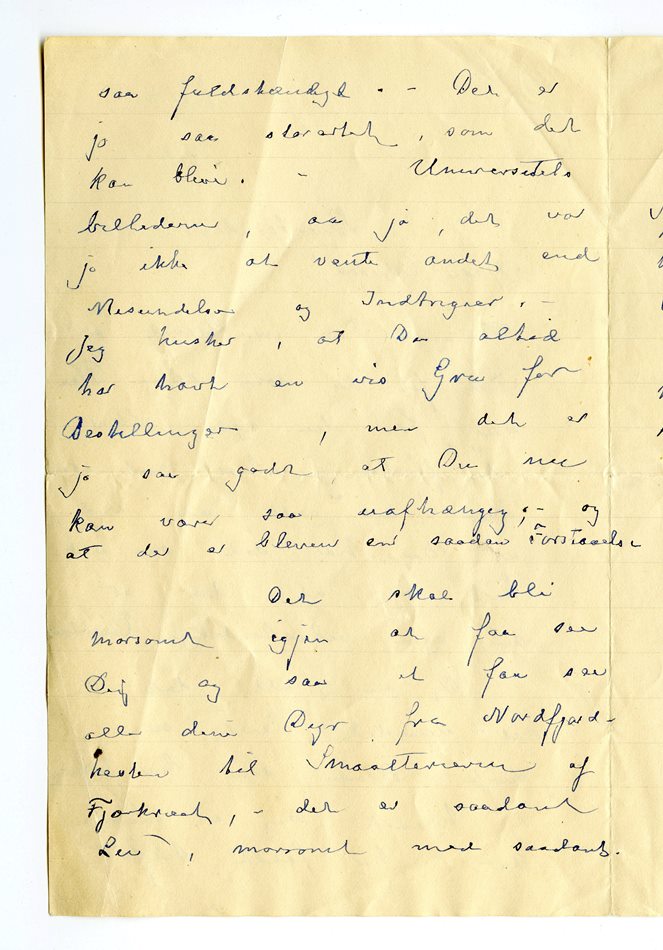 saa fuldstændigt. - Det er
jo saa storartet, som det
kan blive. - Universitets
billederne, aa ja, det var
jo ikke at vente andet end
Misundelse og Indtriguer. -
Jeg husker, at Du altid
har havt en vis Gru for
Bestillinger, men det er
jo saa godt, at Du nu
kan være saa uafhængig; - og
at der er bleven en saadan Forstaaelse
Det skal bli
morsomt igjen at faa see
Dig og saa at faa see
alle dine Dyr fra Nordfjord-
hesten til Smaatterierne af
Fjærkræet, - det er saadant
Liv, morsomt med saadant.